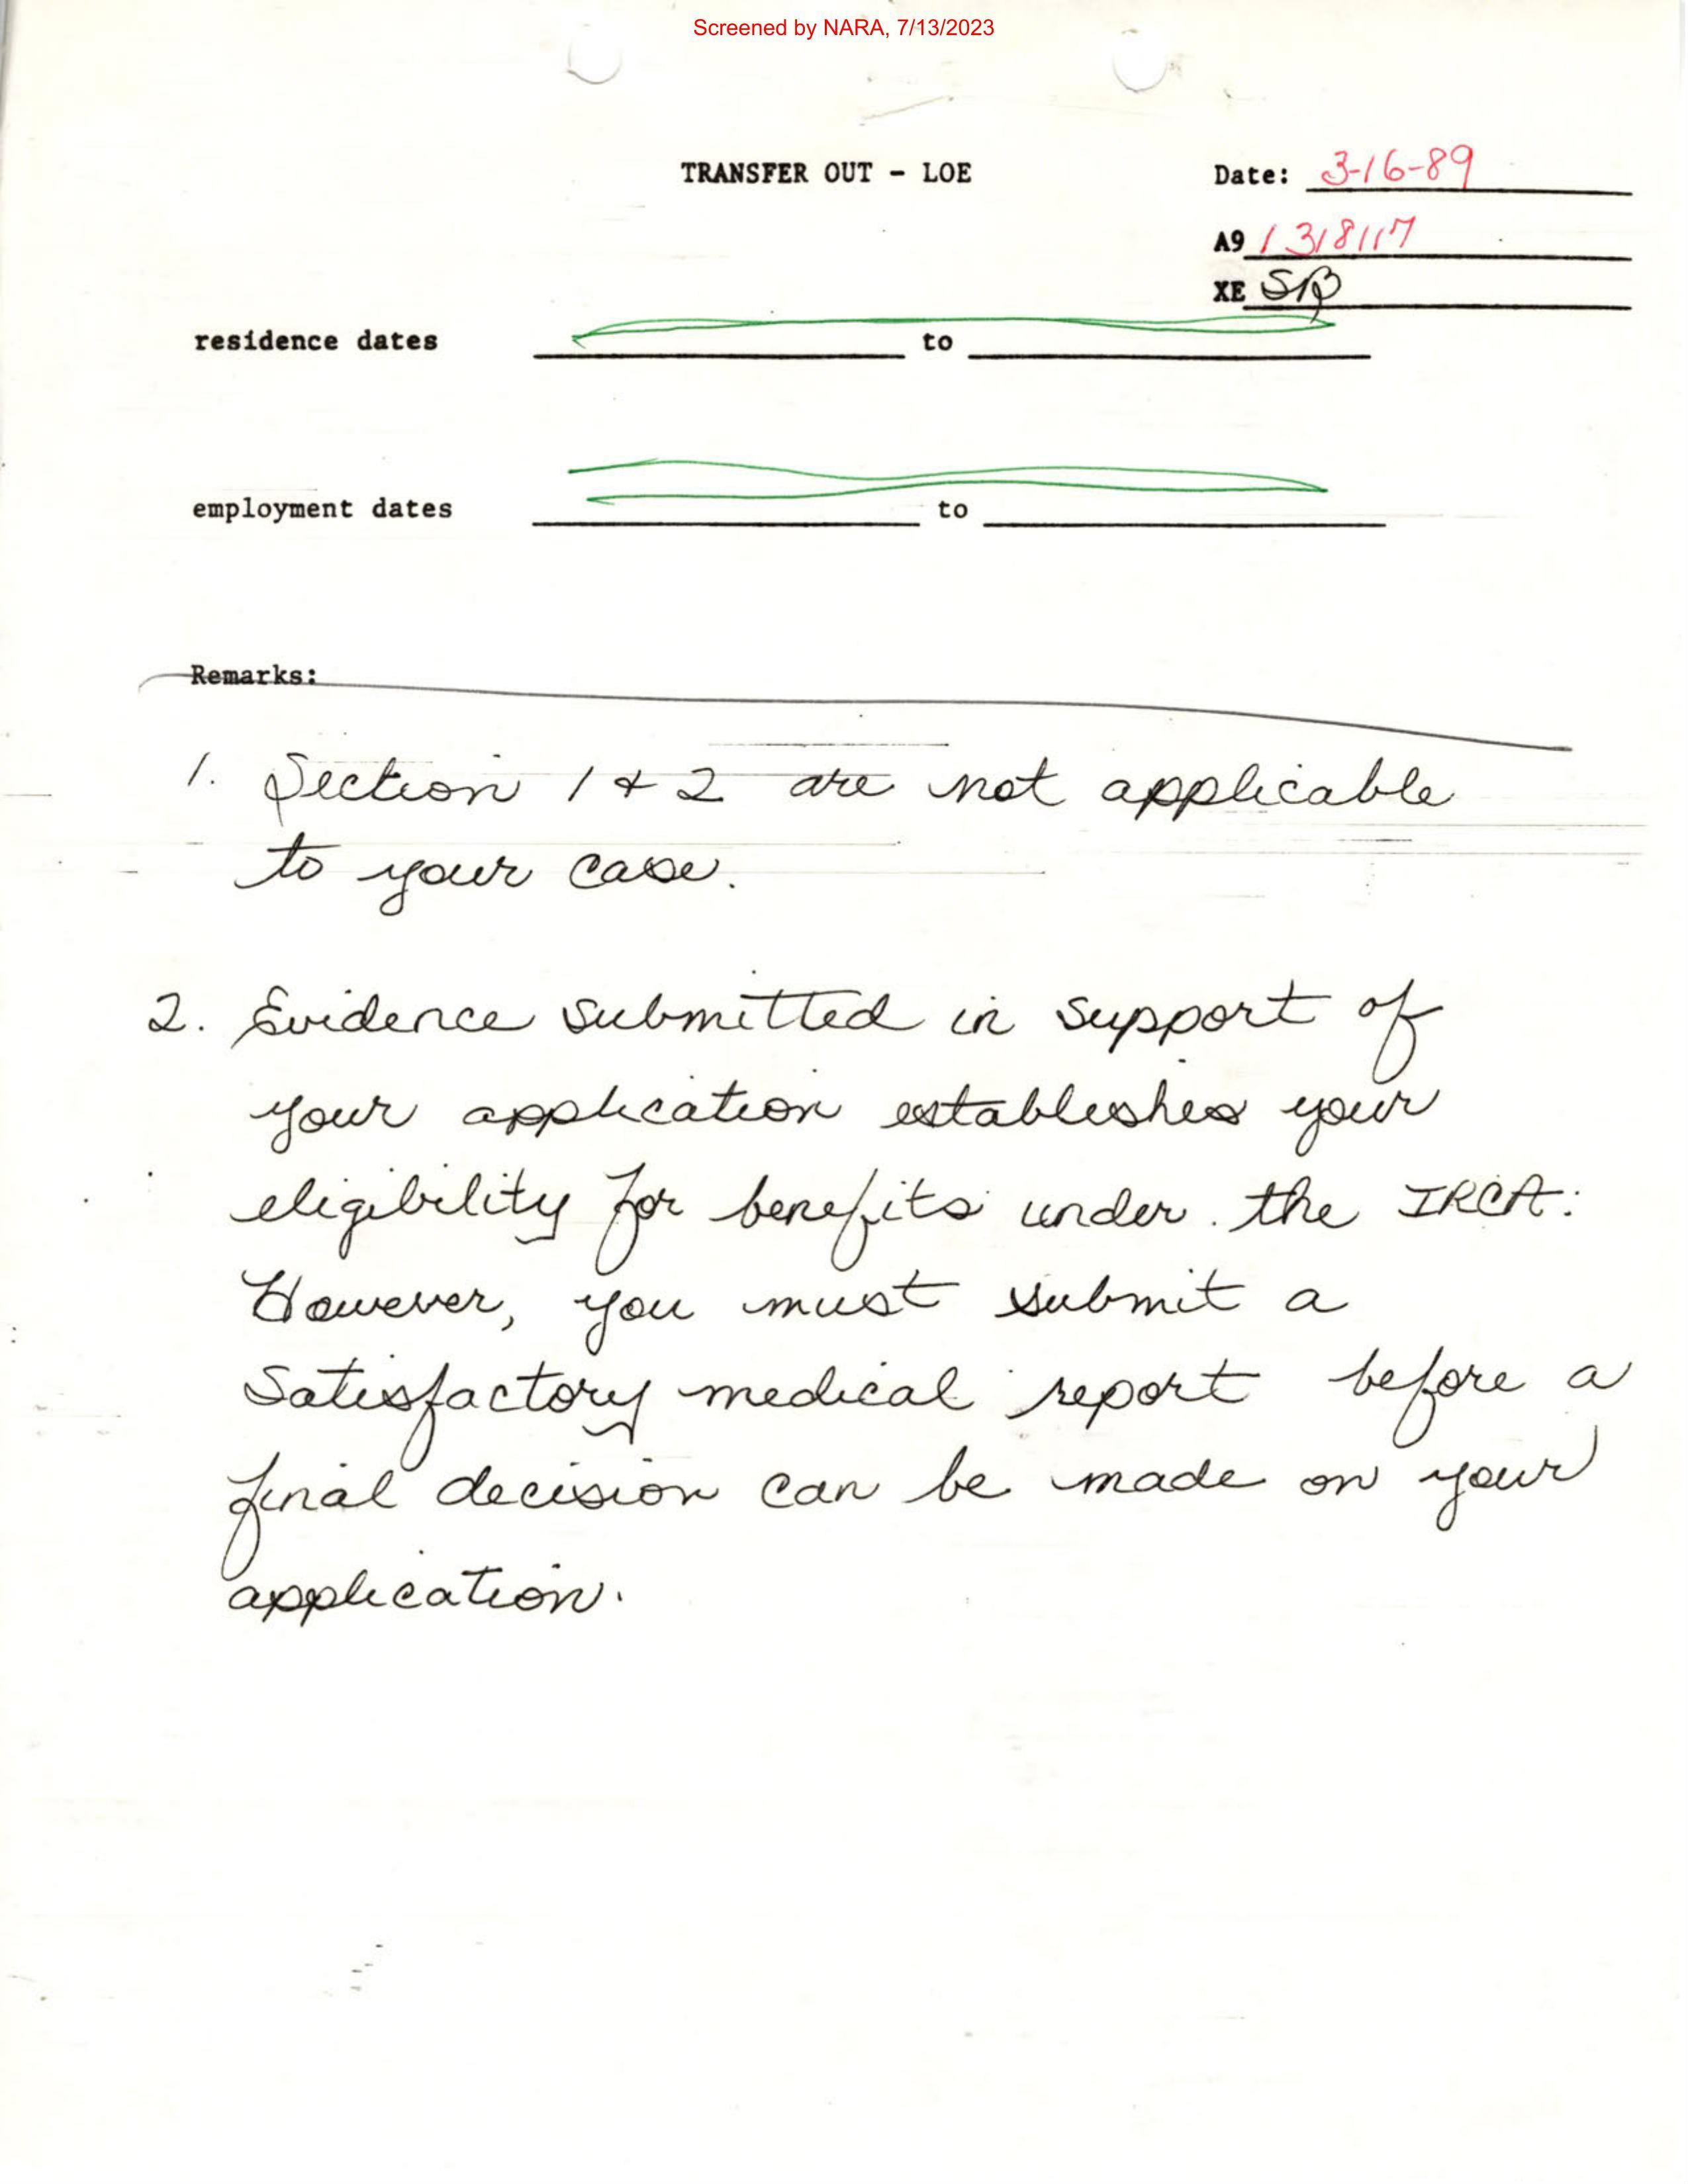 Screened by NARA, 7/13/2023
TRANSFER OUT - LOE
Date: 3-16-89
A9 1318117
XE SB
residence dates to
employment dates to
Remarks:
1. Section 1 & 2 are not applicable
to your case.
2. Evidence submitted in support of
your application establishes your
eligibility for benefits under the IRCA.
However, you must submit a
Satisfactory medical report before a
final decision can be made on your
application.